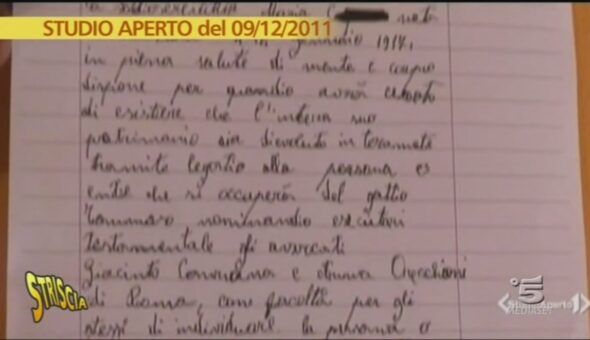 STUDIO APERTO del 09/12/2011
la sottoscritta Maria C nata
gennaio 1917,
in piena salute di mente e corpo
dispone per quando avrà cessato
di esistere che l'intero suo
patrimonio sia devoluto in
tramite legato alla persona o
ente che si occuperà del gatto
Tommaso nominando esecutori
testamentale gli avvocati
Giacinto e Anna Orecchioni
di Roma, con facoltà per gli
stessi di individuare la persona o
STRISCIA
5
MEDIASET
Studio Aperto 1